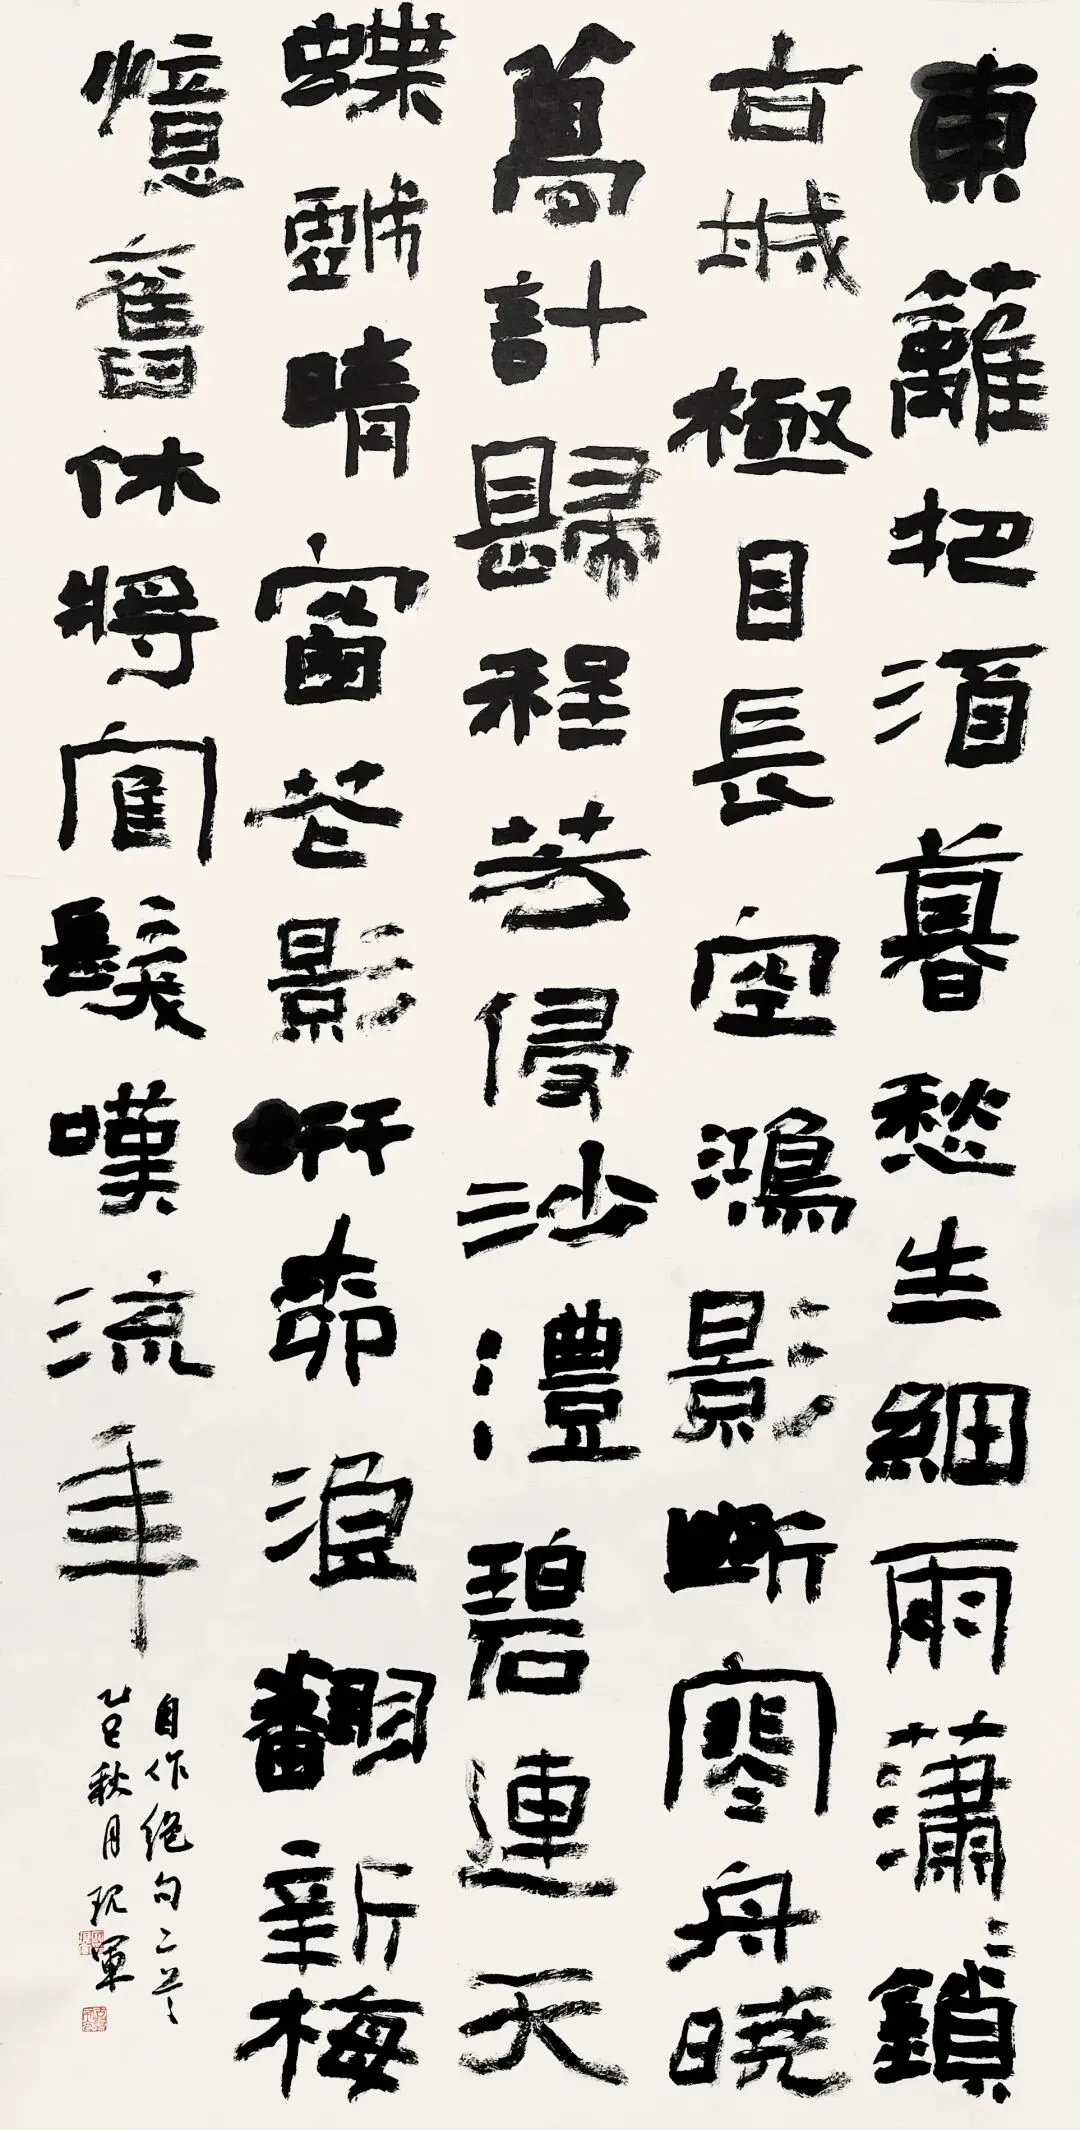 東籬把酒暮愁生細雨瀟〻鎖
古城極目長空鴻影斷寒舟曉
萬計歸程芳侵沙澧碧連天
蝶戲晴窗花影妍桺浪翻新梅
憶舊休將寉鬢嘆流年
自作絕句二首
乙巳秋月軍